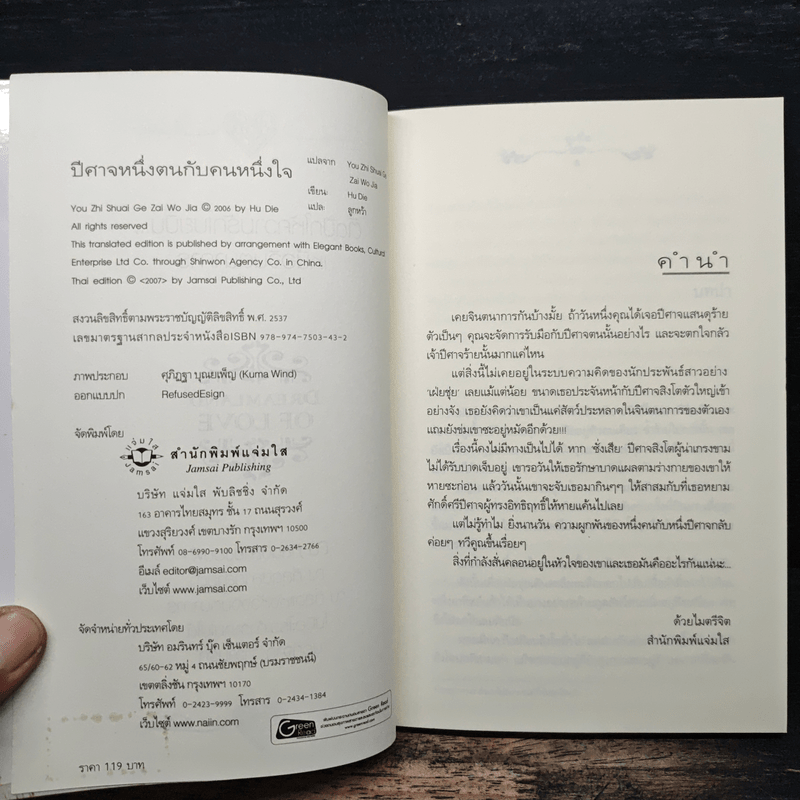 ปีศาจหนึ่งตนกับคนหนึ่งใจ
แปลจาก You Zhi Shuai Ge
Zai Wo Jia
เขียน: Hu Die
แปล: ลูกหว้า
You Zhi Shuai Ge Zai Wo Jia © 2006 by Hu Die
All rights reserved
This translated edition is published by arrangement with Elegant Books, Cultural
Enterprise Ltd Co. through Shinwon Agency Co. in China.
Thai edition © <2007> by Jamsai Publishing Co., Ltd
สงวนลิขสิทธิ์ตามพระราชบัญญัติลิขสิทธิ์ พ.ศ. 2537
เลขมาตรฐานสากลประจำหนังสือISBN 978-974-7503-43-2
ภาพประกอบ ศุภิฏฐา บุณยเพ็ญ (Kuma Wind)
ออกแบบปก RefusedEsign
จัดพิมพ์โดย
แจ่มใส
Jamsai
สำนักพิมพ์แจ่มใส
Jamsai Publishing
บริษัท แจ่มใส พับลิชชิ่ง จำกัด
163 อาคารไทยสมุทร ชั้น 17 ถนนสุรวงศ์
แขวงสุริยวงศ์ เขตบางรัก กรุงเทพฯ 10500
โทรศัพท์ 08-6990-9100 โทรสาร 0-2634-2766
อีเมล์ editor@jamsai.com
เว็บไซต์ www.jamsai.com
จัดจำหน่ายทั่วประเทศโดย
บริษัท อมรินทร์ บุ๊ค เซ็นเตอร์ จำกัด
65/60-62 หมู่ 4 ถนนชัยพฤกษ์ (บรมราชชนนี)
เขตตลิ่งชัน กรุงเทพฯ 10170
โทรศัพท์ 0-2423-9999 โทรสาร 0-2434-1384
เว็บไซต์ www.naiin.com
Green
Read
ราคา 119 บาท
คำนำ
เคยจินตนาการกันบ้างมั้ย ถ้าวันหนึ่งคุณได้เจอปีศาจแสนดุร้าย
ตัวเป็นๆ คุณจะจัดการรับมือกับปีศาจตนนั้นอย่างไร และจะตกใจกลัว
เจ้าปีศาจร้ายนั้นมากแค่ไหน
แต่สิ่งนี้ไม่เคยอยู่ในระบบความคิดของนักประพันธ์สาวอย่าง
'เฝ่ยซุ่ย' เลยแม้แต่น้อย ขนาดเธอประจันหน้ากับปีศาจสิงโตตัวใหญ่เข้า
อย่างจัง เธอยังคิดว่าเขาเป็นแค่สัตว์ประหลาดในจินตนาการของตัวเอง
แถมยังข่มเขาซะอยู่หมัดอีกด้วย!!!
เรื่องนี้คงไม่มีทางเป็นไปได้ หาก 'ซั่งเสีย' ปีศาจสิงโตผู้น่าเกรงขาม
ไม่ได้รับบาดเจ็บอยู่ เขารอวันให้เธอรักษาบาดแผลตามร่างกายของเขาให้
หายซะก่อน แล้ววันนั้นเขาจะจับเธอมากินๆๆ ให้สาสมกับที่เธอหยาม
ศักดิ์ศรีปีศาจผู้ทรงอิทธิฤทธิ์ให้หายแค้นไปเลย
แต่ไม่รู้ทำไม ยิ่งนานวัน ความผูกพันของหนึ่งคนกับหนึ่งปีศาจกลับ
ค่อยๆ ทวีคูณขึ้นเรื่อยๆ
สิ่งที่กำลังสั่นคลอนอยู่ในหัวใจของเขาและเธอมันคืออะไรกันแน่นะ...
ด้วยไมตรีจิต
สำนักพิมพ์แจ่มใส